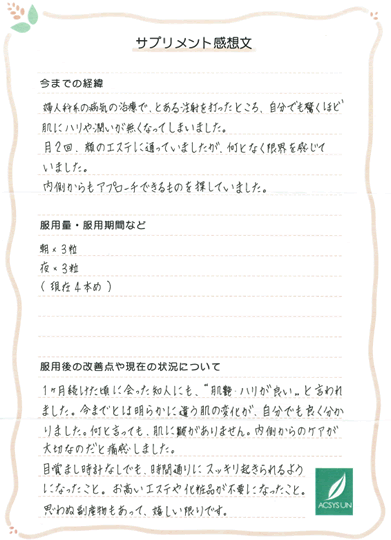 サプリメント感想文
今までの経緯
婦人科系の病気の治療で、とある注射を打ったところ、自分でも驚くほど
肌にハリや潤いが無くなってしまいました。
月2回、顔のエステに通っていましたが、何となく限界を感じて
いました。
内側からもアプローチできるものを探していました。
服用量・服用期間など
朝×3粒
夜×3粒
(現在4本め)
服用後の改善点や現在の状況について
1ヶ月続けた頃に会った知人にも、"肌艶・ハリが良い"と言われ
ました。今までとは明らかに違う肌の変化が、自分でも良く分か
りました。何と言っても、肌に皺がありません。内側からのケアが
大切なのだと痛感しました。
目覚まし時計なしでも、時間通りにスッキリ起きられるよう
になったこと。お高いエステや化粧品が不要になったこと。
思わぬ副産物もあって、嬉しい限りです。
ACSYSUN